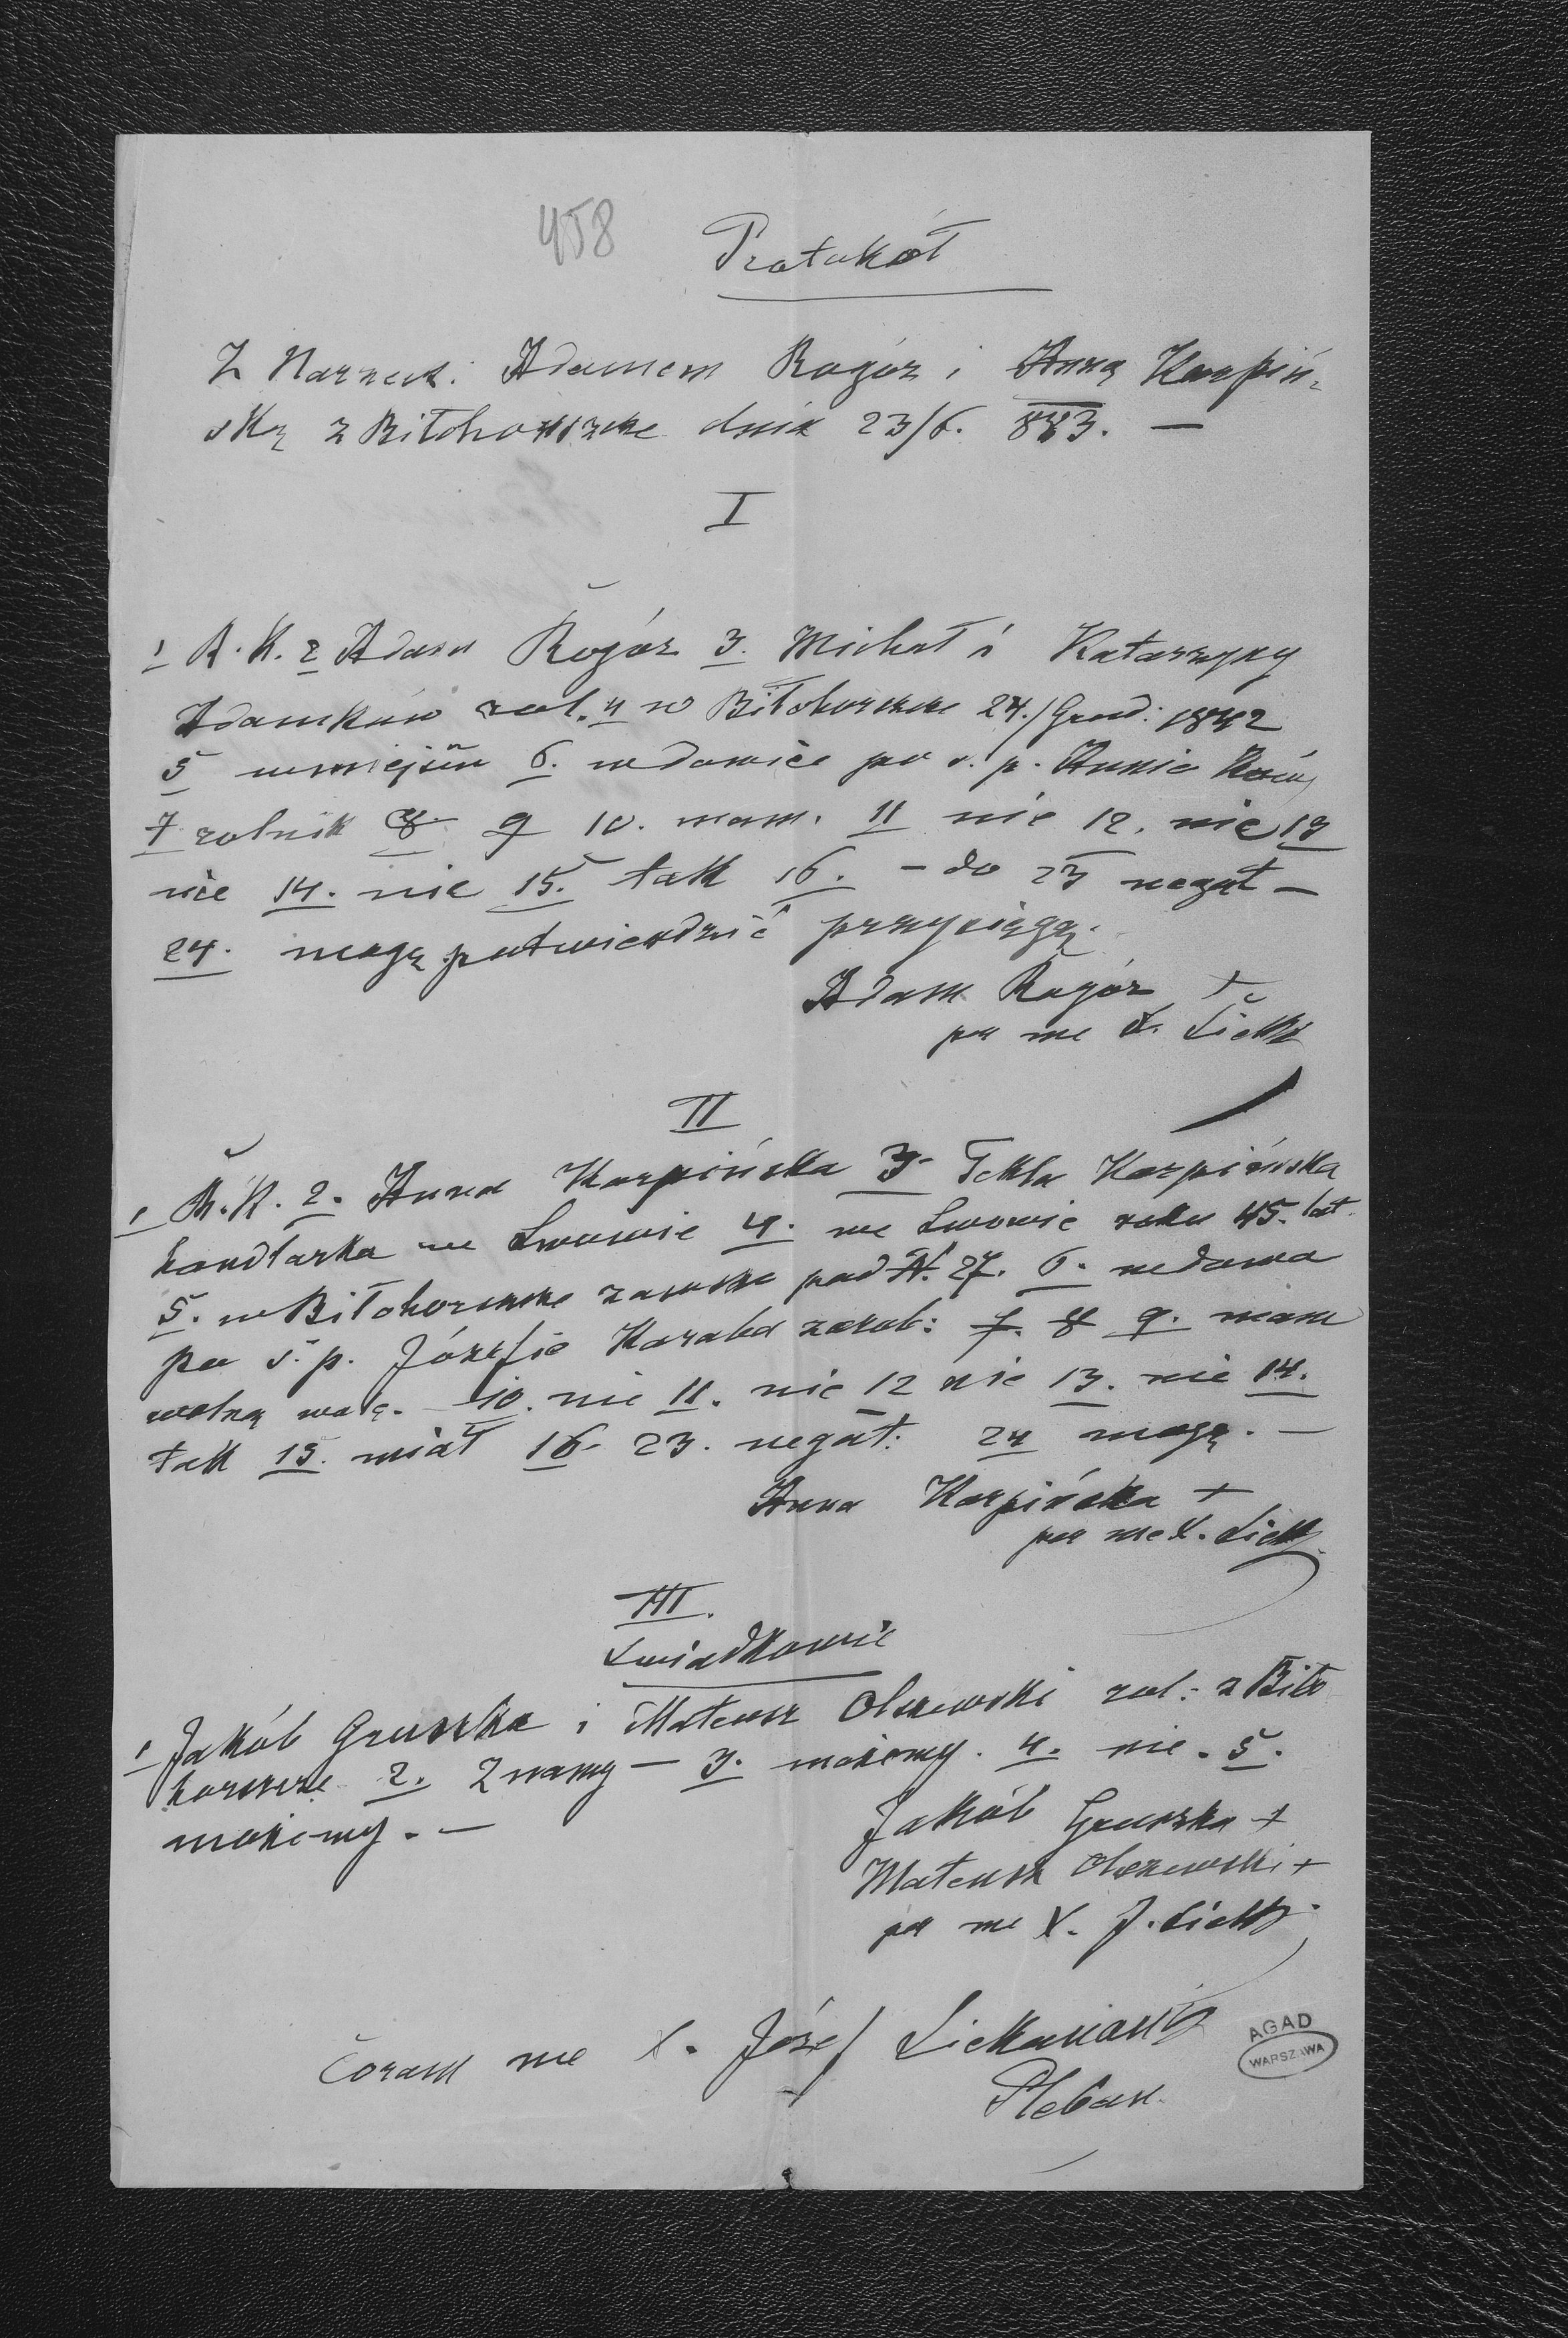 458
Protokół
Z Narzecz. Adamem Rogóz i Anną Karpiń-
ską z Biłohorszcze dnia 23/6. 883. —
I
1 R. K. 2 Adam Rogóz 3. Michał i Katarzyny
Adamków rol. 4 w Biłohorszcze 24./Grud: 1842
5 6. wdowiec po ś. p. Annie
7 rolnik 8 9 10. mam. 11 nie 12. nie 13
nie 14. nie 15. tak 16. – do 23 negat –
24. mogę potwierdzić przysięgą.
Adam Rogóz +
per me X.
II
1 R. K. 2. Anna Karpińska 3 Tekla Karpińska
handlarka we Lwowie 4. we Lwowie roku 45. lat
5. w Biłohorszcze zawsze pod N. 27. 6. wdowa
po ś. p. Józefie Karaba zarob: 7. 8 9. mam
wolną wolę. 10. nie 11. nie 12 nie 13. nie 14.
tak 15. miał 16 - 23. negat: 24 mogę. —
Anna Karpińska +
per me X.
III.
Świadkowie
1 Jakób Gruszka i Mateusz Olszewski rol: z Biło
horszcze 2. Znamy — 3. możemy. 4. nie. 5.
możemy. —
Jakób Gruszka +
Mateusz Olszewski +
per me X. J.
Coram me X. Józef
Pleban.
AGAD
WARSZAWA